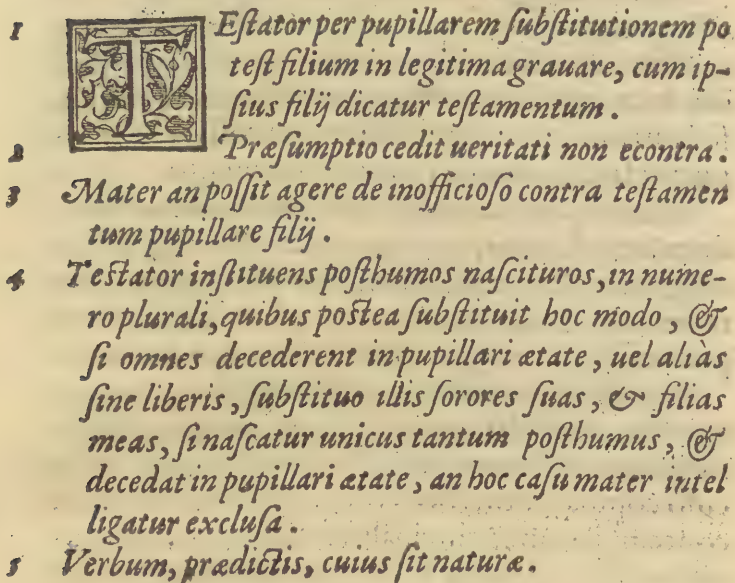 1 TEſtator per pupillarem ſubſtitutionem po
teſt filium in legitima grauare, cum ip-
ſius filij dicatur teſtamentum.
2 Præſumptio cedit ueritati non econtra.
3 Mater an poſſit agere de inofficioſo contra teſtamen
tum pupillare filij.
4 Teſtator inſtituens poſthumos naſcituros, in nume-
ro plurali, quibus poſtea ſubſtituit hoc modo, &
ſi omnes decederent in pupillari ætate, uel aliàs
ſine liberis, ſubſtituo illis ſorores ſuas, & filias
meas, ſi naſcatur unicus tantum poſthumus, &
decedat in pupillari ætate, an hoc caſu mater intel
ligatur excluſa.
5 Verbum, prædictis, cuius ſit naturæ.